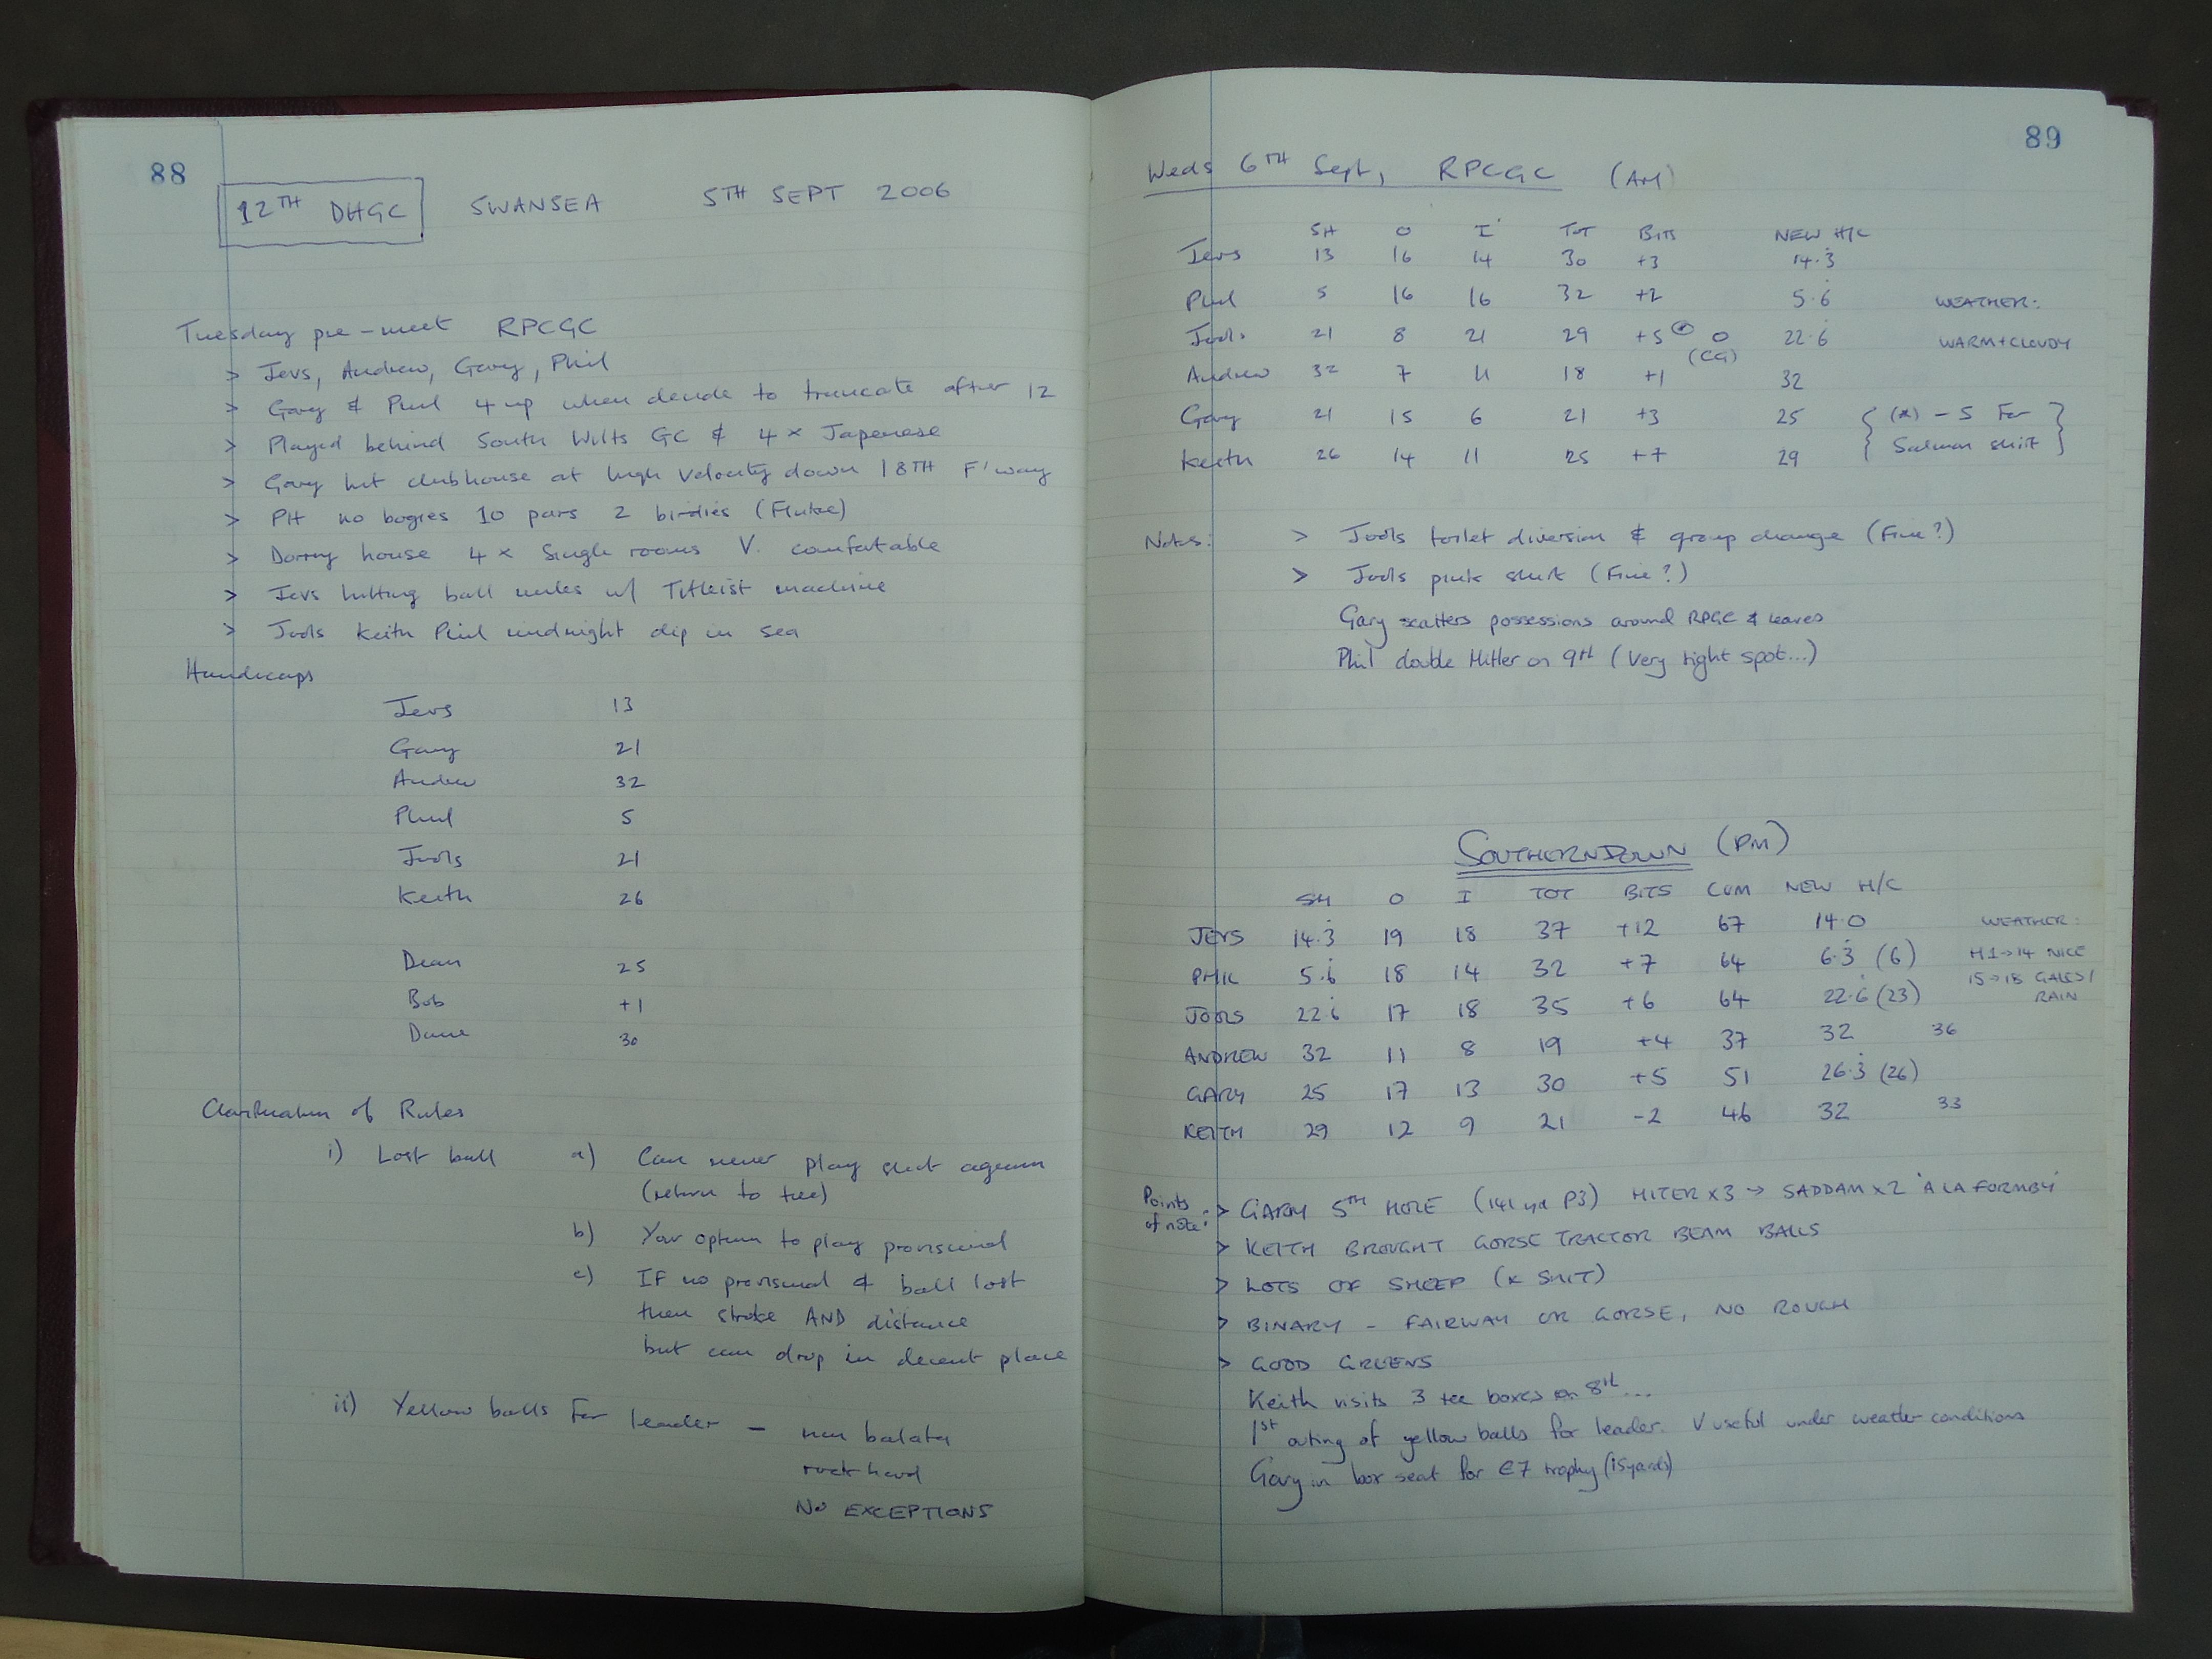 88
12TH DHGC SWANSEA 5TH SEPT 2006
Tuesday pre-meet RPCGC
> Jevs, Andrew, Gary, Phil
> Gary & Phil 4 up when decide to truncate after 12
> Played behind South Wilts GC & 4 x Japenese
> Gary hit clubhouse at high velocity down 18TH F'way
> PH no bogies 10 pars 2 birdies (Fluke)
> Dormy house 4 x Single rooms V. comfortable
> Jevs hitting ball miles w/ Titleist machine
> Jools Keith Phil midnight dip in sea
Handicaps
Jevs 13
Gary 21
Andrew 32
Phil 5
Jools 21
Keith 26
Dean 25
Bob +1
Dave 30
Clarification of Rules
i) Lost ball a) Can never play shot again
(return to tree)
b) Your option to play provisional
c) IF no provisional & ball lost
then stroke AND distance
but can drop in decent place
ii) Yellow balls for leader - non balata
rock hard
NO EXCEPTIONS
89
Weds 6TH Sept, RPCGC (AM)
SH O I TOT BITS NEW H/C
Jevs 13 16 14 30 +3 14.3
Phil 5 16 16 32 +2 5.6 WEATHER:
Jools 21 8 21 29 +5 (*) 0 22.6 WARM + CLOUDY
(CG)
Andrew 32 7 11 18 +1 32
Gary 21 15 6 21 +3 25 { (*) - 5 For }
Keith 26 14 11 25 +7 29 { Salmon shirt }
Notes: > Jools toilet diversion & group change (Fine?)
> Jools pink shirt (Fine?)
Gary scatters possessions around RPGC & leaves
Phil double Hitler on 9th (Very tight spot...)
SOUTHERNDOWN (PM)
SH O I TOT BITS CUM NEW H/C
JEVS 14.3 19 18 37 +12 67 14.0 WEATHER:
PHIL 5.6 18 14 32 +7 64 6.3 (6) H1->14 NICE
15->18 GALES/
RAIN
JOOLS 22.6 17 18 35 +6 64 22.6 (23)
ANDREW 32 11 8 19 +4 37 32 36
GARY 25 17 13 30 +5 51 26.3 (26)
KEITH 29 12 9 21 -2 46 32 33
Points of note: > GARY 5TH HOLE (141 yd P3) HITER x3 -> SADDAM x2 'A LA FORMBY'
> KEITH BROUGHT GORSE TRACTOR BEAM BALLS
> LOTS OF SHEEP (& SHIT)
> BINARY - FAIRWAY OR GORSE, NO ROUGH
> GOOD GREENS
Keith visits 3 tee boxes on 8th...
1st outing of yellow balls for leader. V useful under weather conditions
Gary in box seat for €7 trophy (15 yards)